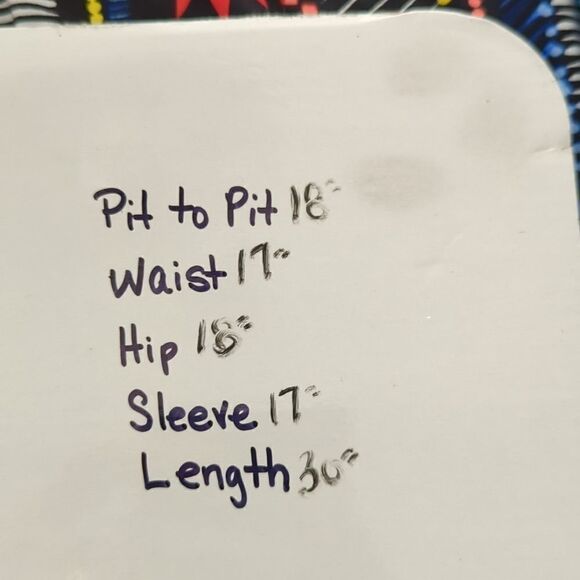 Pit to Pit 18"
Waist 17"
Hip 18"
Sleeve 17"
Length 30"